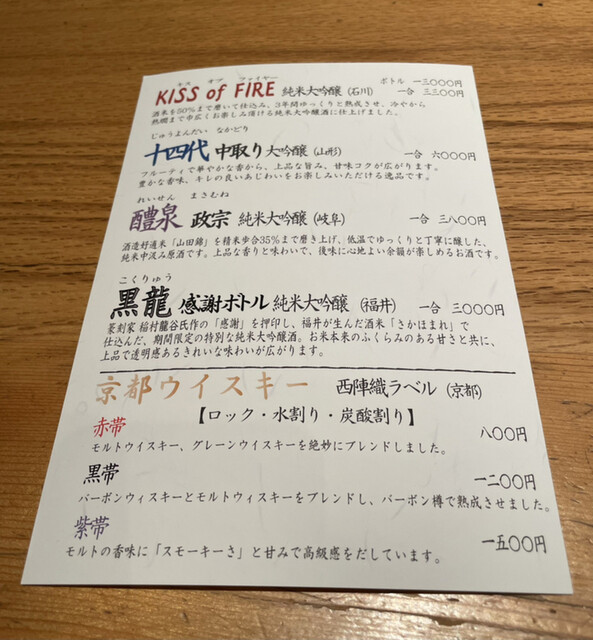 キス オブ ファイヤー
KISS of FIRE 純米大吟醸 (石川) ボトル 一三〇〇〇円
一合 三三〇〇円
酒米を50%まで磨いて仕込み、3年間ゆっくりと熟成させ、冷やから
熱燗まで巾広くお楽しみ頂ける純米大吟醸酒に仕上げました。
じゅうよんだい なかどり
十四代 中取り 大吟醸 (山形) 一合 六〇〇〇円
フルーティで華やかな香から、上品な旨み、甘味コクが広がります。
豊かな香味、キレの良いあじわいをお楽しみいただける逸品です。
れいせん まさむね
醴泉 政宗 純米大吟醸 (岐阜) 一合 三八〇〇円
酒造好適米「山田錦」を精米歩合35%まで磨き上げ、低温でゆっくりと丁寧に醸した、
純米中汲み原酒です。上品な香りと味わいで、後味に心地よい余韻が楽しめるお酒です。
こくりゅう
黒龍 感謝ボトル 純米大吟醸 (福井) 一合 三〇〇〇円
篆刻家 稲村龍谷氏作の「感謝」を押印し、福井が生んだ酒米「さかほまれ」で
仕込んだ、期間限定の特別な純米大吟醸酒。お米本来のふくらみのある甘さと共に、
上品で透明感あるきれいな味わいが広がります。
京都ウイスキー 西陣織ラベル (京都)
【ロック・水割り・炭酸割り】
赤帯 八〇〇円
モルトウイスキー、グレーンウイスキーを絶妙にブレンドしました。
黒帯 一二〇〇円
バーボンウィスキーとモルトウィスキーをブレンドし、バーボン樽で熟成させました。
紫帯 一五〇〇円
モルトの香味に「スモーキーさ」と甘みで高級感をだしています。